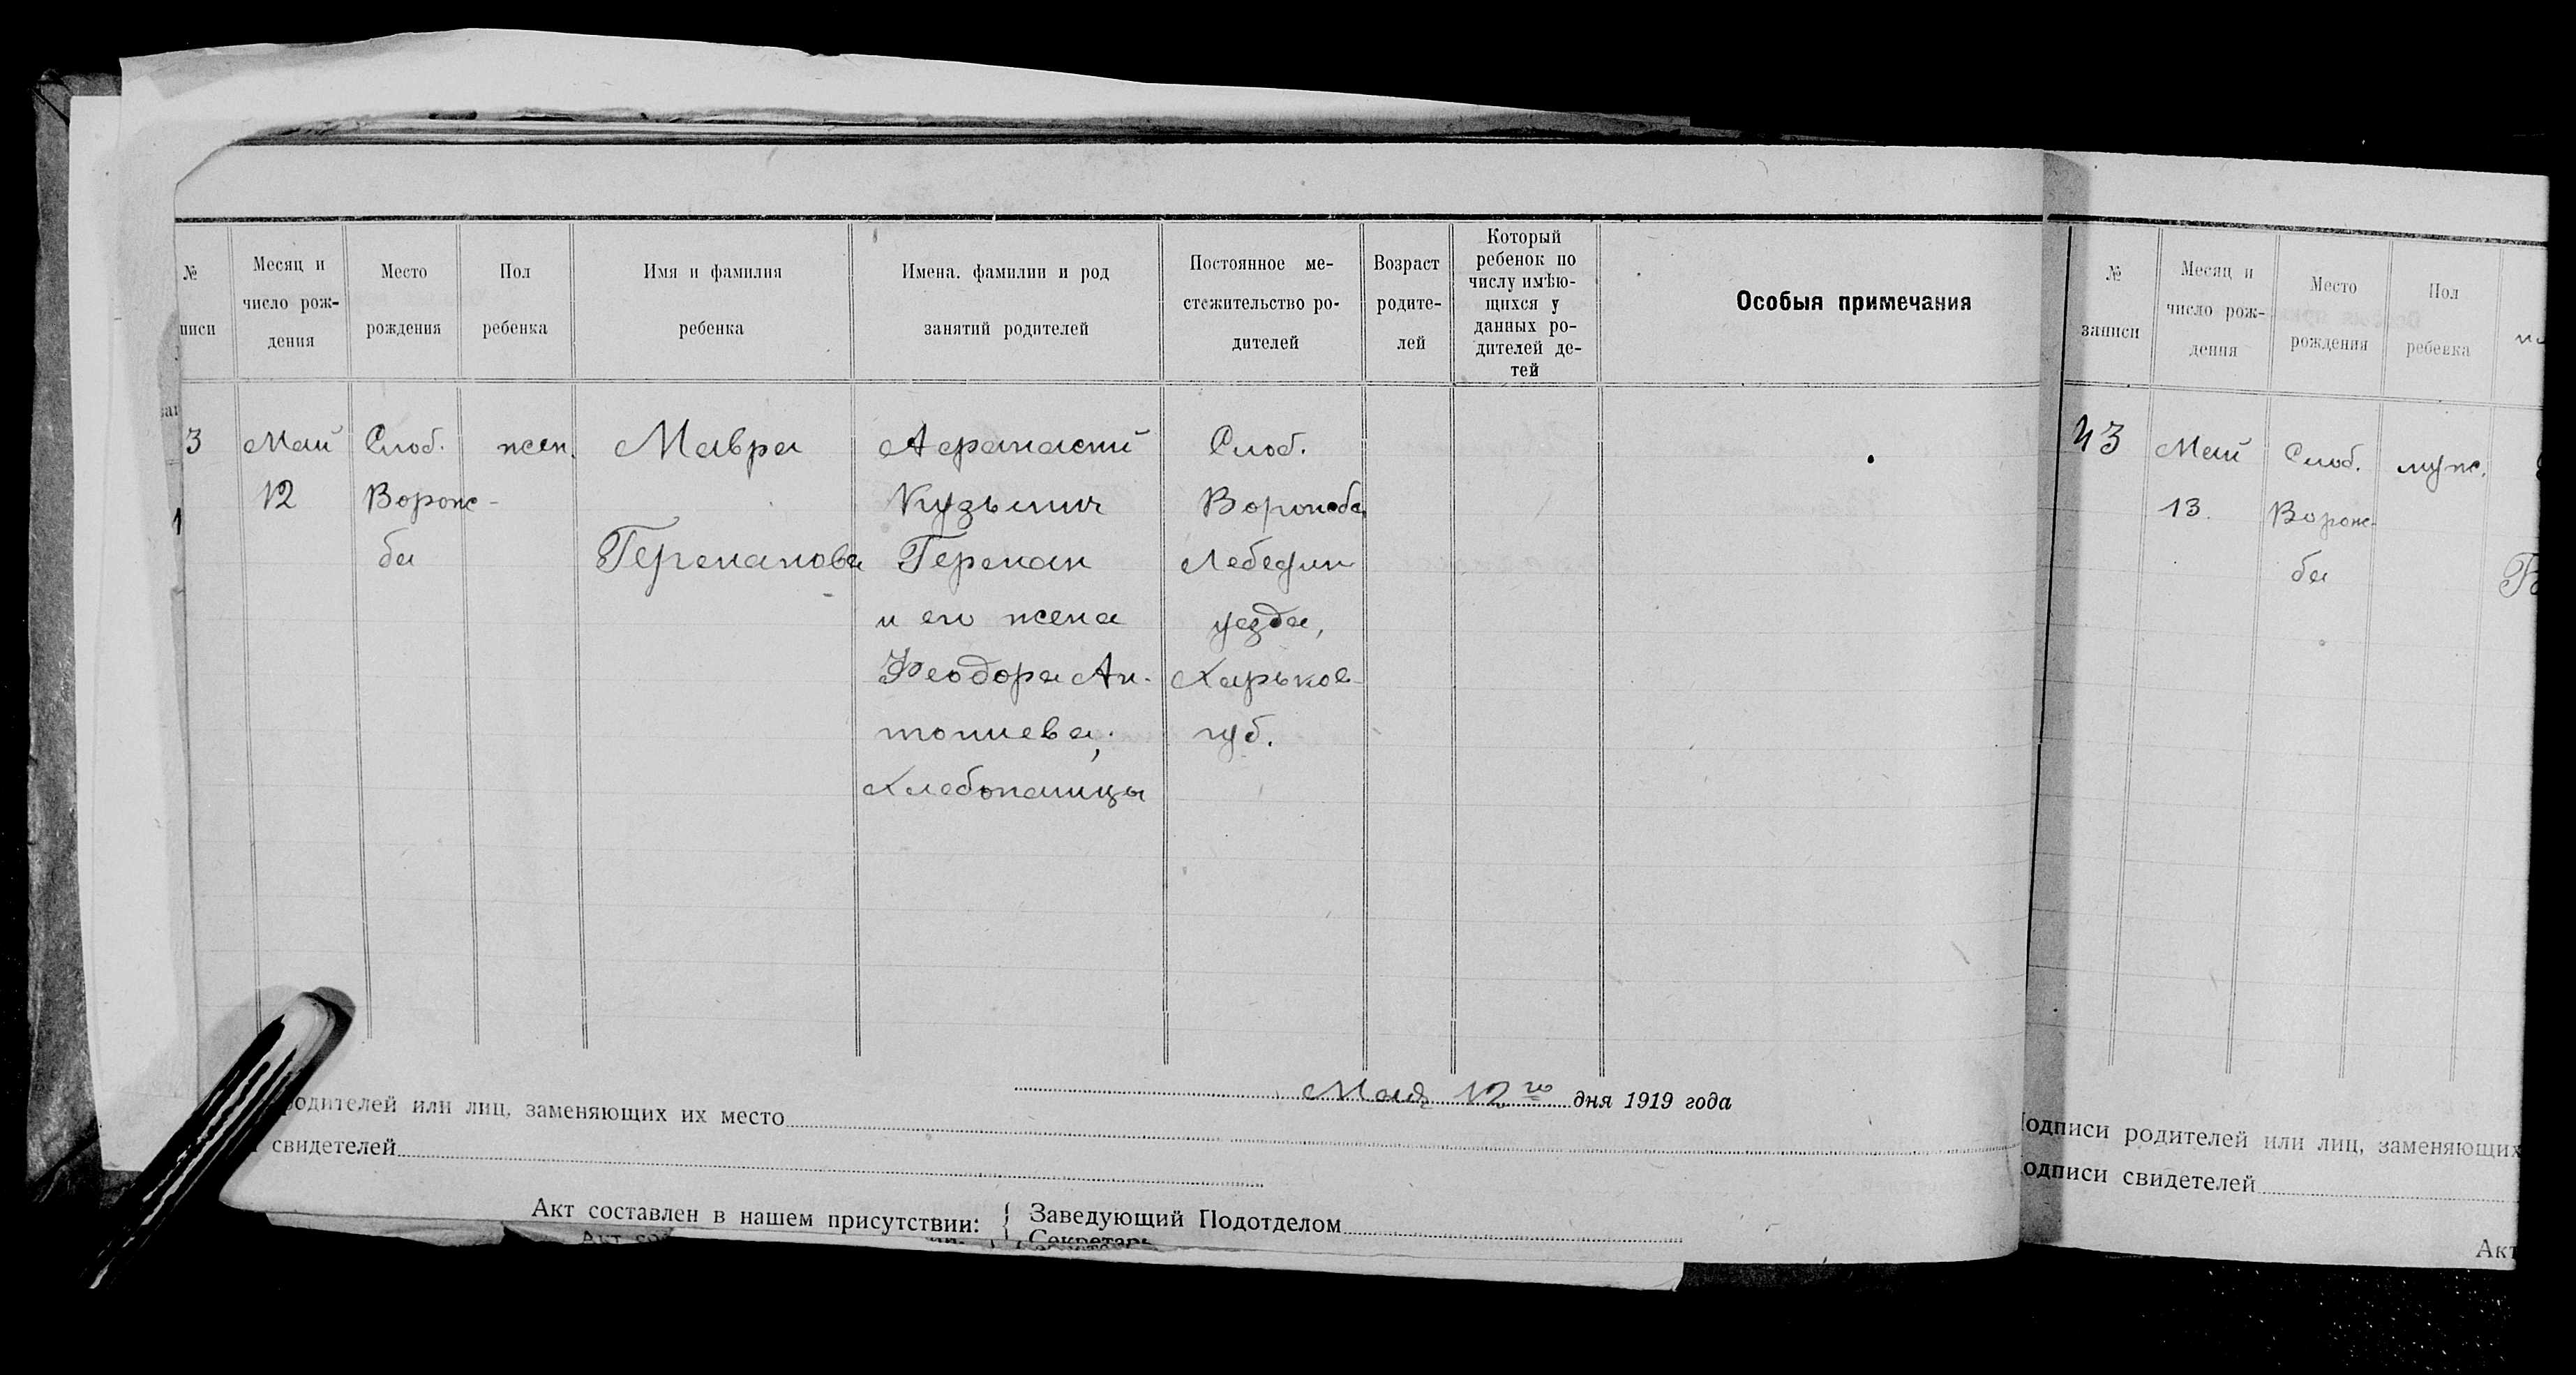 №
писи
Месяц и
число рож-
дения
Место
рождения
Пол
ребенка
Имя и фамилия
ребенка
Имена. фамилии и род
занятий родителей
Постоянное ме-
стожительство ро-
дителей
Возраст
родите-
лей
Который
ребенок по
числу имѣю-
щихся у
данных ро-
дителей де-
тей
Особыя примечания
3
Май
12
Слоб.
Ворож-
ба
жен.
Мавра
Аѳанасий
Кузьмич
и его жена
Феодора Ан-
тониева;
Хлебопашцы
Слоб.
Ворожба
Лебедин
уезда,
Харьков
губ.
Мая 12го дня 1919 года
родителей или лиц, заменяющих их место
свидетелей
Акт составлен в нашем присутствии:
Заведующий Подотделом
Секретарь
№
записи
Месяц и
число рож-
дения
Место
рождения
Пол
ребенка
43
Май
13.
Слоб.
Ворож-
ба
муж.
одписи родителей или лиц, заменяющих
одписи свидетелей
Акт